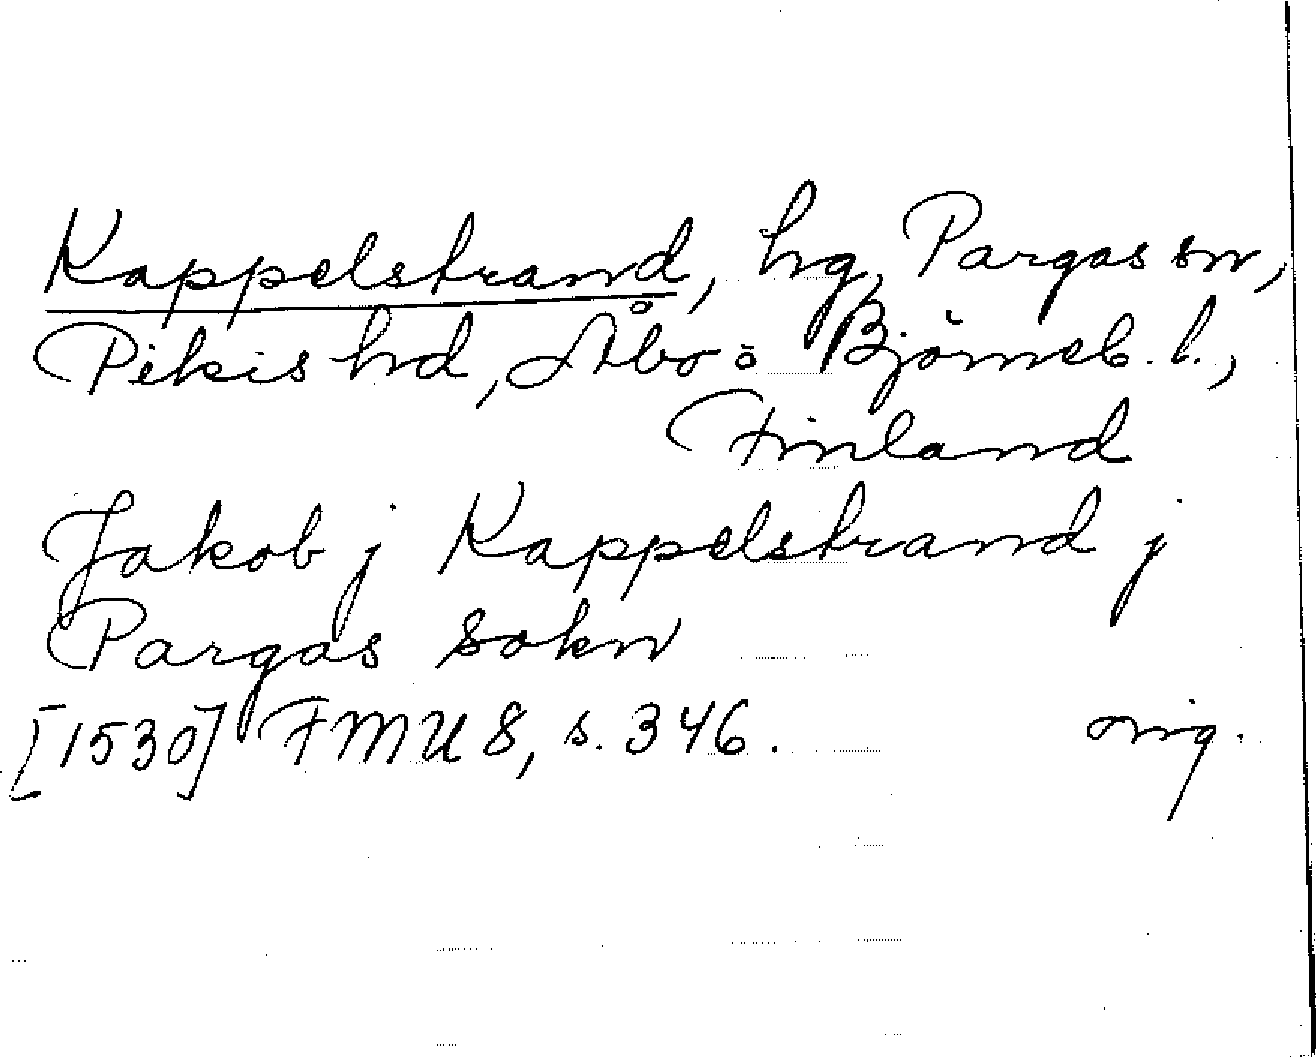 Kappelstrand, hg, Pargas sn,
Pikis hd, Åbo o Björneb. l.,
Finland
Jakob j Kappelstrand j
Pargas sokn
[1530] FMU 8, s. 346. orig.